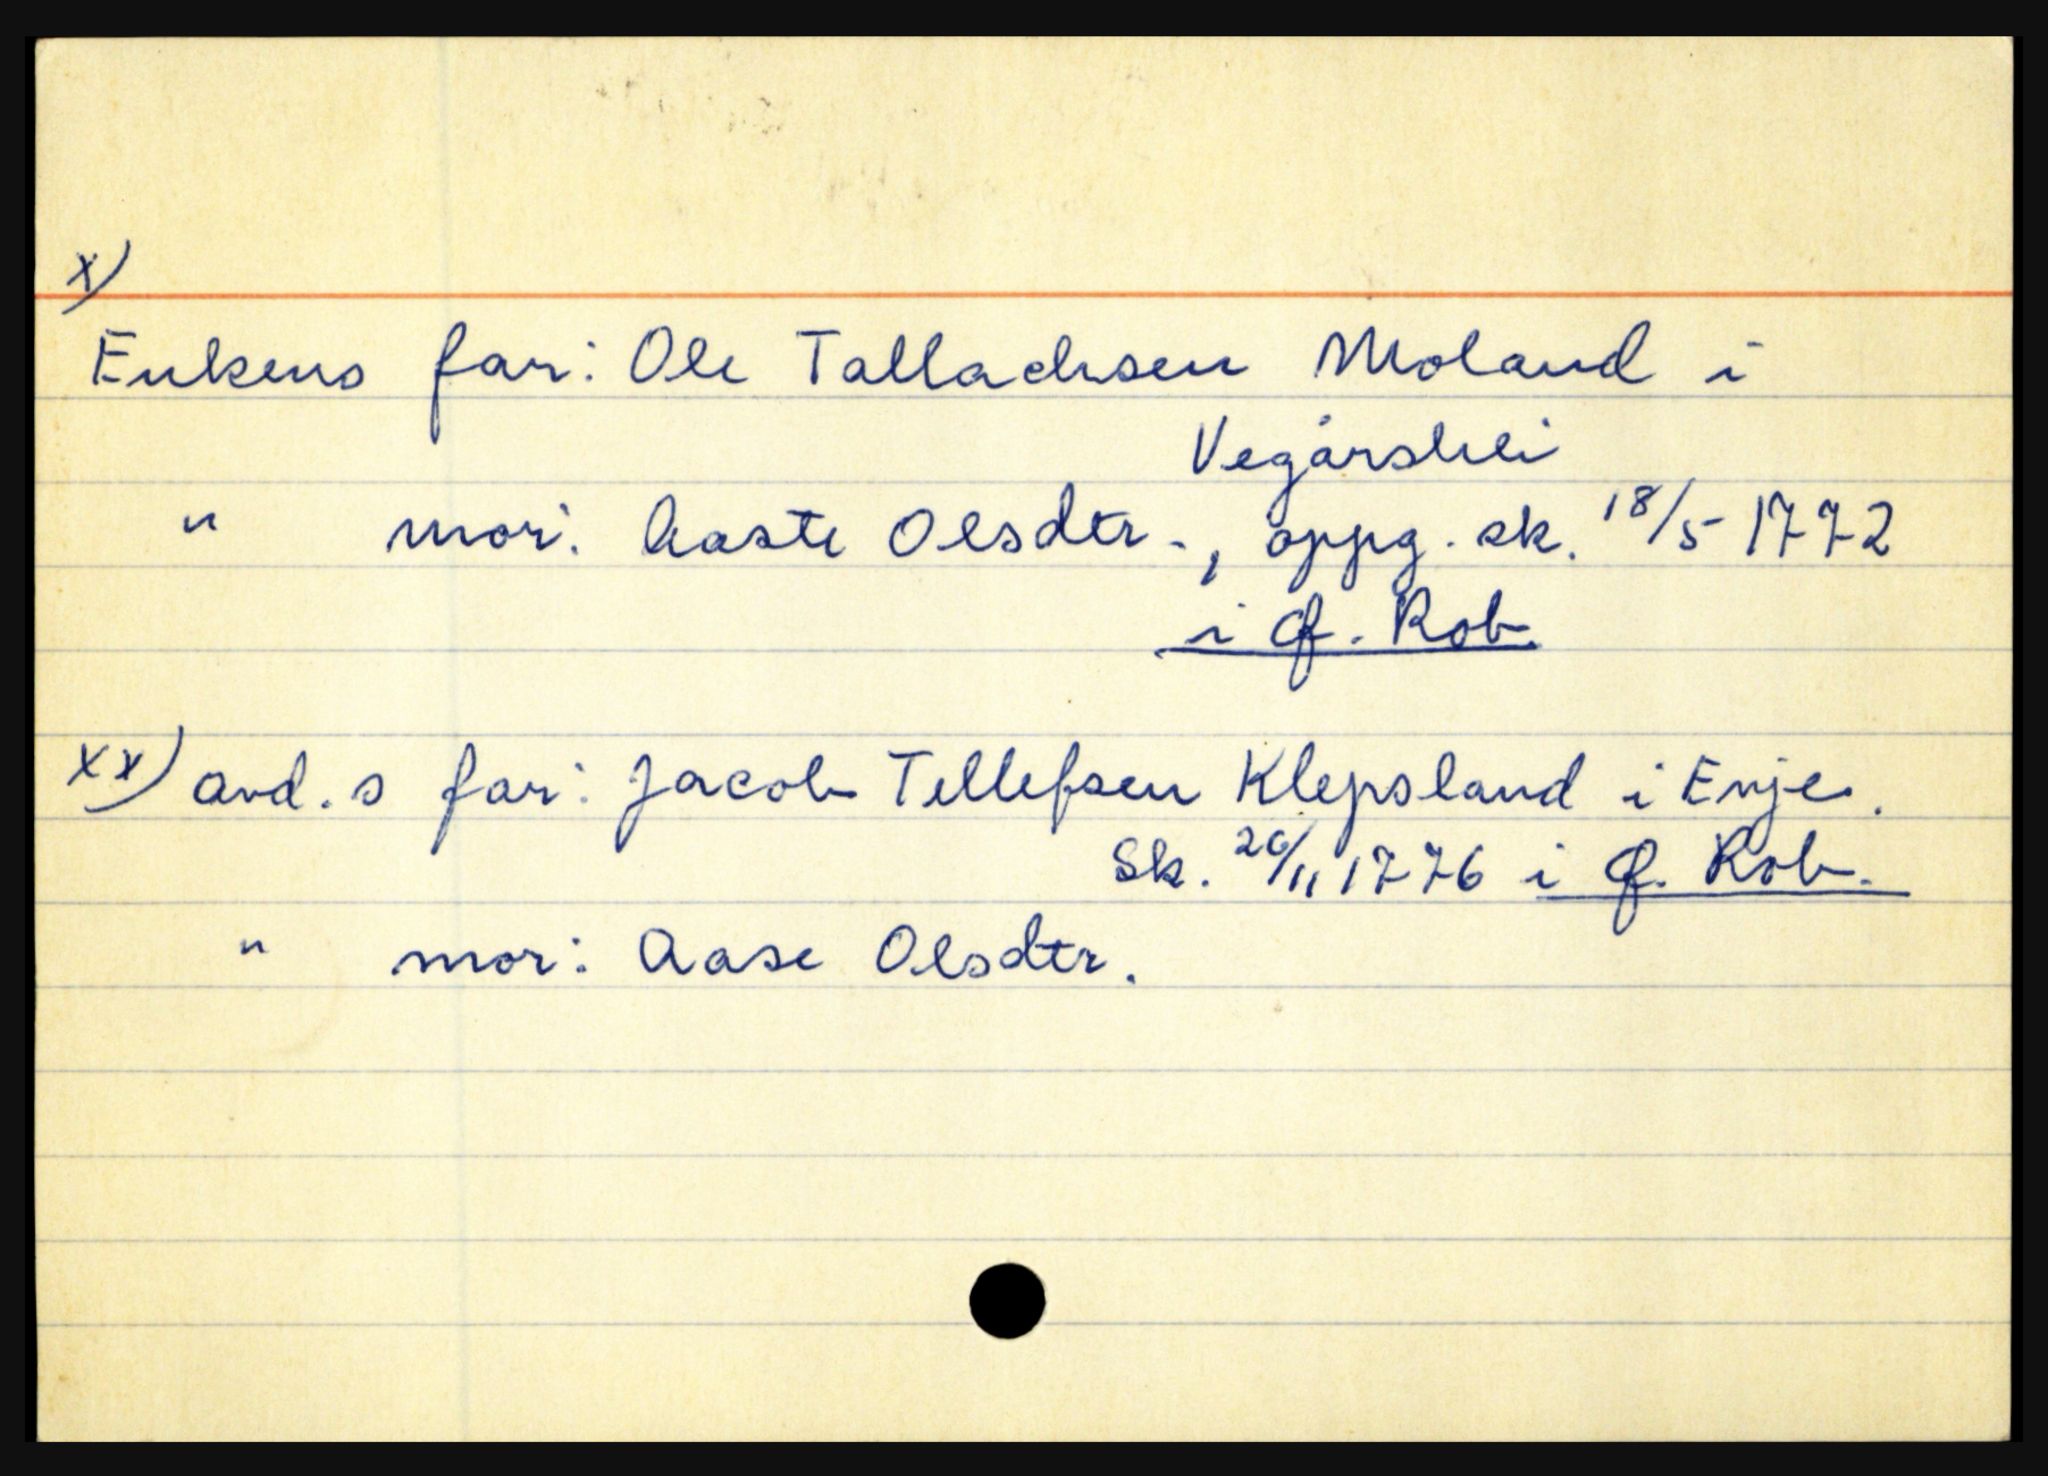 x)
Enkens far: Ole Tallachsen Moland i
Vegårshei
" mor: Aaste Olsdtr., oppg. sk. 18/5 1772
i Rob.
xx) avd.s far: Jacob Tellefsen Klepsland i Evje.
Sk. 26/11 1776 i Rob.
" mor: Aase Olsdtr.